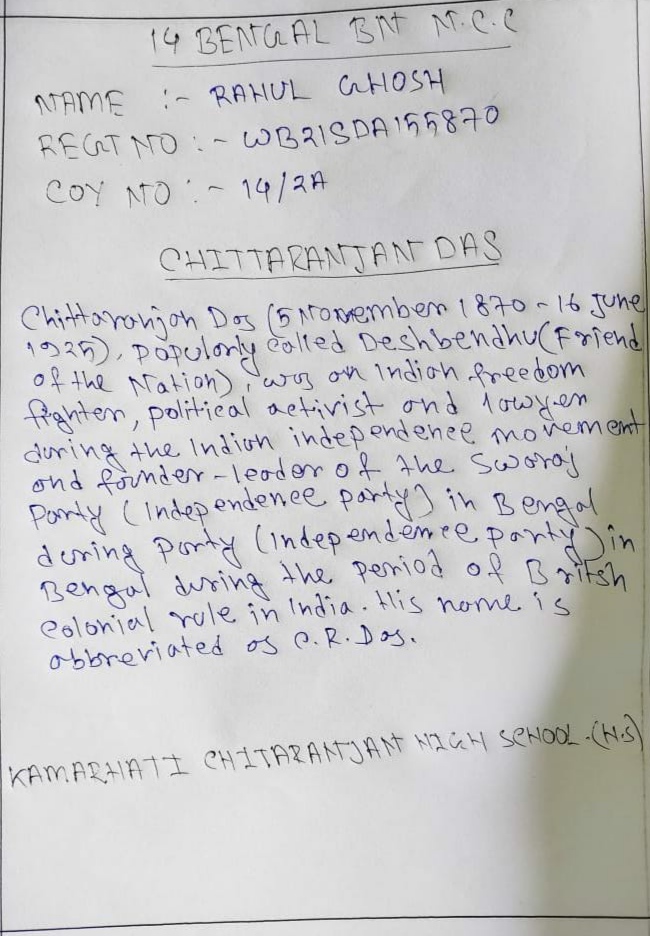 14 BENGAL BN N.C.C
NAME :- RAHUL GHOSH
REGT NO :- WB21SDA155870
COY NO :- 14/2A
CHITTARANJAN DAS
Chittaranjan Das (5 November 1870 - 16 June
1925), popularly called Deshbendhu (Friend
of the Nation), was an Indian freedom
fighter, political activist and lawyer
during the Indian independence movement
and founder-leader of the Swaraj
Party (Independence party) in Bengal
during party (Independence party) in
Bengal during the period of Britsh
colonial rule in India. His name is
abbreviated as C.R. Das.
KAMARHATI CHITARANJAN HIGH SCHOOL.(H.S)